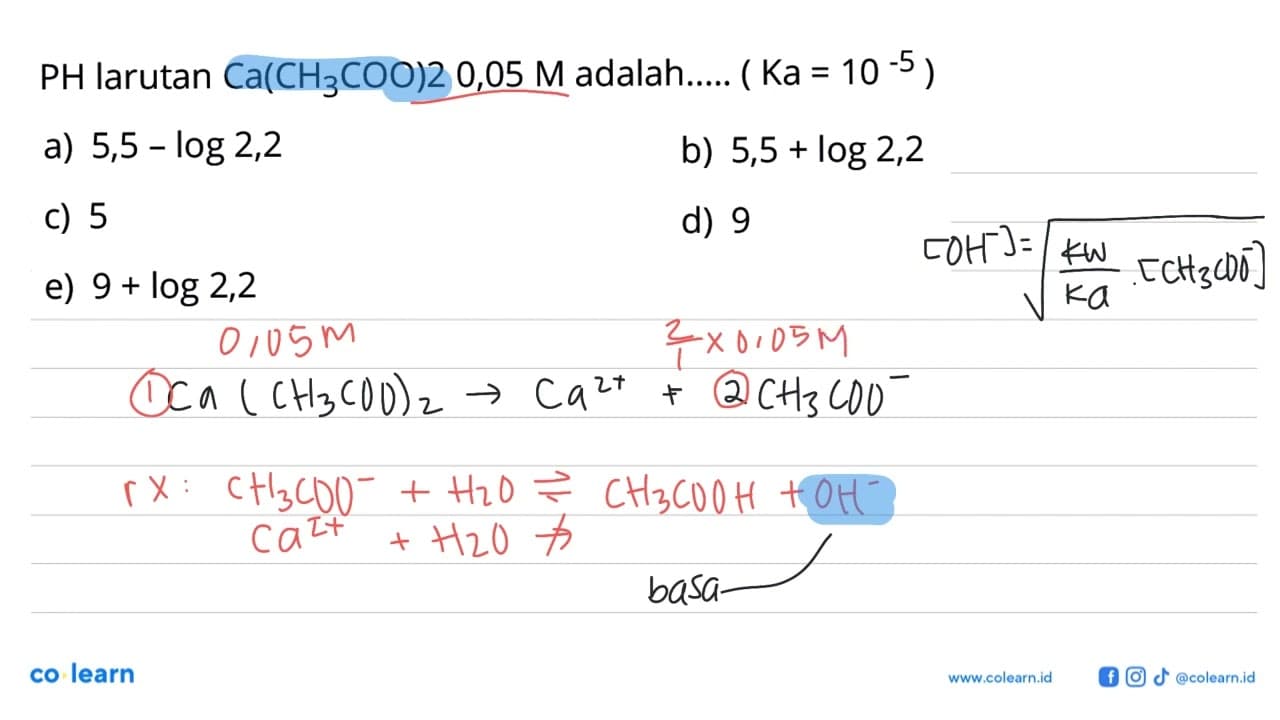 PH larutan Ca(CH₃COO)2 0,05 M adalah..... ( Ka = 10 ⁻⁵ )
a) 5,5 – log 2,2
b) 5,5 + log 2,2
c) 5
d) 9
[OH⁻] = √ Kw / Ka . [CH₃COO⁻]
e) 9 + log 2,2
0,05 M
2/1 x 0,05 M
① Ca (CH₃COO)₂ → Ca²⁺ + ② CH₃COO⁻
rx : CH₃COO⁻ + H₂O ⇌ CH₃COOH + OH⁻
Ca²⁺ + H₂O ↛
basa
co learn
www.colearn.id
@colearn.id